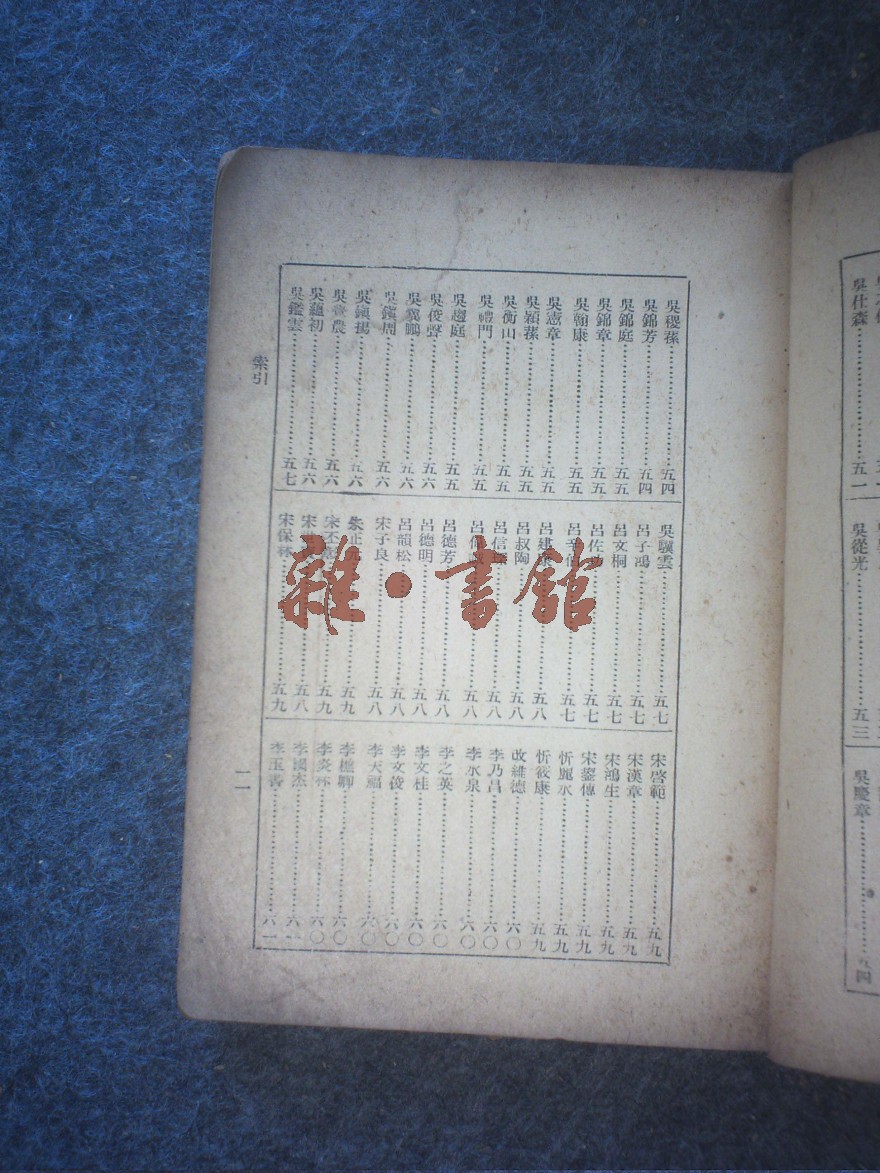 吳稷蓀 五四
吳錦芳 五四
吳錦庭 五五
吳錦章 五五
吳翰康 五五
吳憲章 五五
吳穎蓀 五五
吳衡山 五五
吳禮門 五五
吳趨庭 五五
吳俊聲 五六
吳翼鵬 五六
周 五六
吳鎮揚 五六
吳 農 五六
吳蘊初 五六
吳鑑雲 五七
吳驥雲 五七
呂子鴻 五七
呂文桐 五七
呂佐 五七
呂辛 五七
呂建康 五八
呂叔陶 五八
呂信 五八
呂 五八
呂德芳 五八
呂德明 五八
呂韻松 五八
宋子良 五八
正 五九
宋 五九
宋 五八
宋保林 五九
宋啓範 五九
宋漢章 五九
宋鴻生 五九
宋鋆傳 五九
忻麗水 五九
忻筱康 五九
改維德 六〇
李乃昌 六〇
李水泉 六〇
李之英 六〇
李文桂 六〇
李文俊 六〇
李大福 六〇
李樵聊 六〇
李炎林 六〇
李國杰 六一
李玉書 六一
索引
一一
吳仕森 五一
吳從光 五三
吳慶章 五四
雜·書館